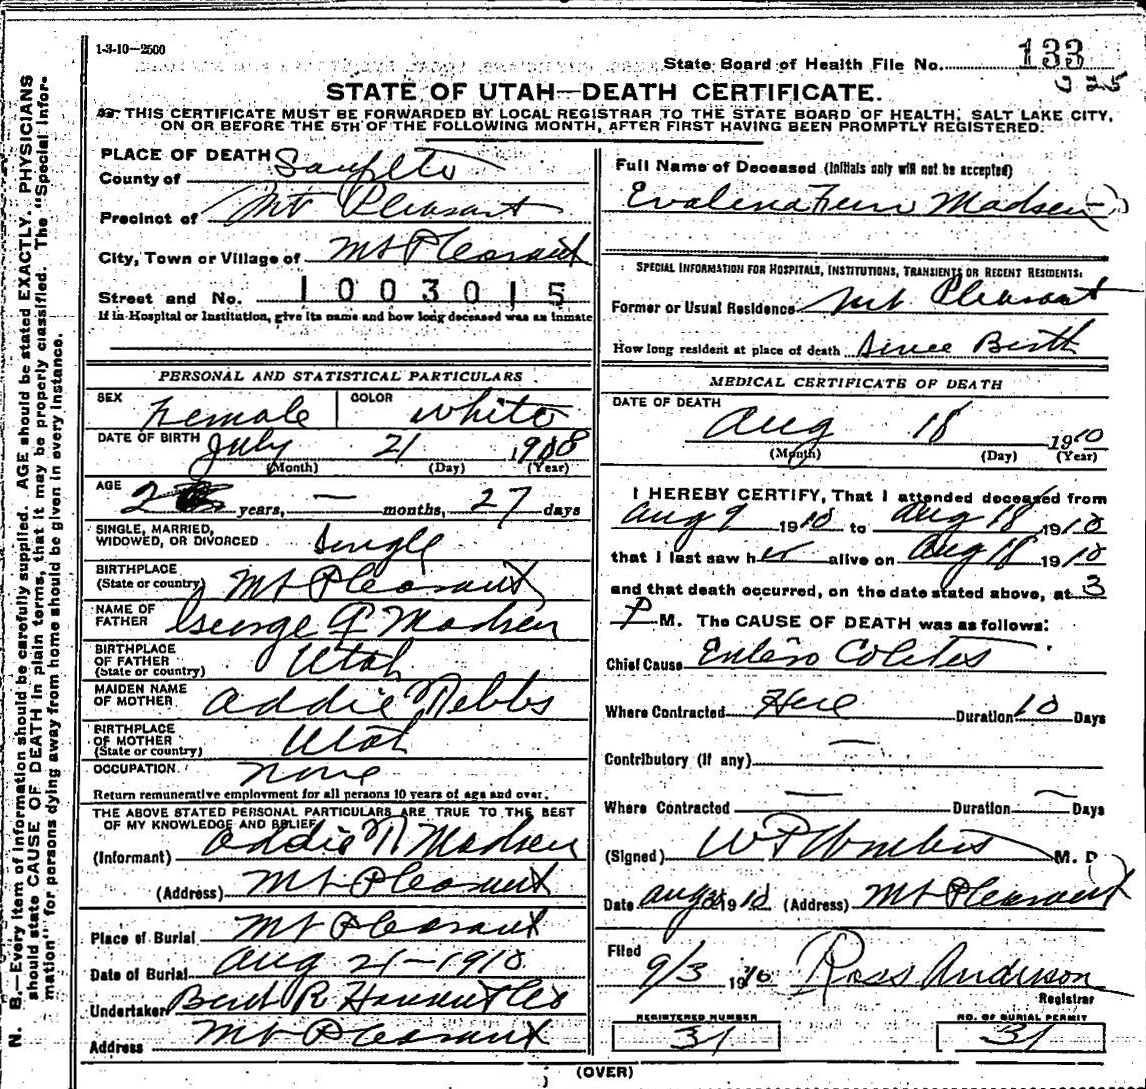 1-3-10-2500
State Board of Health File No. 133
325
STATE OF UTAH—DEATH CERTIFICATE.
THIS CERTIFICATE MUST BE FORWARDED BY LOCAL REGISTRAR TO THE STATE BOARD OF HEALTH, SALT LAKE CITY,
ON OR BEFORE THE 5TH OF THE FOLLOWING MONTH, AFTER FIRST HAVING BEEN PROMPTLY REGISTERED.
PLACE OF DEATH
County of Sanpete
Precinct of Mt Pleasant
City, Town or Village of Mt Pleasant
Street and No. 1003015
If in Hospital or Institution, give its name and how long deceased was an inmate
PERSONAL AND STATISTICAL PARTICULARS
SEX Female COLOR White
DATE OF BIRTH July 21 1908
(Month) (Day) (Year)
AGE 2 years, — months, 27 days
SINGLE, MARRIED,
WIDOWED, OR DIVORCED Single
BIRTHPLACE
(State or country) Mt Pleasant
NAME OF
FATHER George A Madsen
BIRTHPLACE
OF FATHER
(State or country) Utah
MAIDEN NAME
OF MOTHER Addie
BIRTHPLACE
OF MOTHER
(State or country) Utah
OCCUPATION None
Return remunerative employment for all persons 10 years of age and over.
THE ABOVE STATED PERSONAL PARTICULARS ARE TRUE TO THE BEST
OF MY KNOWLEDGE AND BELIEF
(Informant) Addie N Madsen
(Address) Mt Pleasant
Place of Burial Mt Pleasant
Date of Burial Aug 21-1910
Undertaker R Hansen
Address Mt Pleasant
Full Name of Deceased (Initials only will not be accepted)
Evalena Fern Madsen
SPECIAL INFORMATION FOR HOSPITALS, INSTITUTIONS, TRANSIENTS OR RECENT RESIDENTS:
Former or Usual Residence Mt Pleasant
How long resident at place of death Since Birth
MEDICAL CERTIFICATE OF DEATH
DATE OF DEATH
Aug 18 1910
(Month) (Day) (Year)
I HEREBY CERTIFY, That I attended deceased from
Aug 9 1910 to Aug 18 1910
that I last saw her alive on Aug 18 1910
and that death occurred, on the date stated above, at 3
P M. The CAUSE OF DEATH was as follows:
Chief Cause Entero Colites
Where Contracted Here Duration 10 Days
Contributory (if any) —
Where Contracted — Duration — Days
(Signed) M. D
Date Aug 1910 (Address) Mt Pleasant
Filed
9/3 1910 Ross Anderson
Registrar
REGISTERED NUMBER
31
NO. OF BURIAL PERMIT
31
(OVER)
N. B.—Every item of information should be carefully supplied. AGE should be stated EXACTLY. PHYSICIANS
should state CAUSE OF DEATH in plain terms, that it may be properly classified. The "Special Infor-
mation" for persons dying away from home should be given in every instance.